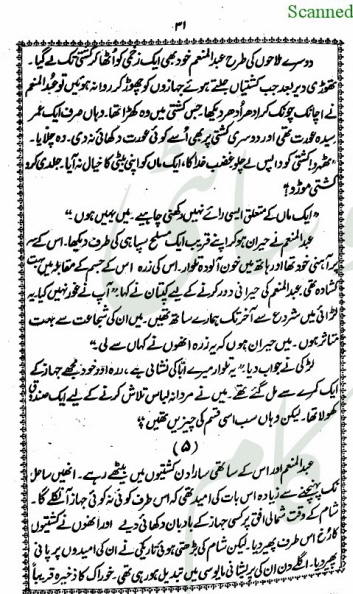 Scanned
۳۱
دوسرے ملاحوں کی طرح عبدالمنعم خود بھی ایک زخمی کو اُٹھا کر کشتی تک لے گیا۔
تھوڑی دیر بعد جب کشتیاں جلتے ہوئے جہازوں کو چھوڑ کر روانہ ہوئیں تو عبدالمنعم
نے اچانک چونک کر ادھر اُدھر دیکھا۔ جس کشتی میں وہ کھڑا تھا۔ وہاں صرف ایک عمر
رسیدہ عورت تھی اور دوسری کشتی پر بھی اُسے کوئی عورت دکھائی نہ دی۔ وہ چلّایا۔
"ٹھہرو! کشتی کو واپس لے چلو غضب خدا کا، ایک ماں کو اپنی بیٹی کا خیال نہ آیا۔ جلدی کرو
کشتی موڑو؟
"ایک ماں کے متعلق ایسی رائے نہیں رکھنی چاہیے۔ میں یہیں ہوں۔"
عبدالمنعم نے حیران ہو کر اپنے قریب ایک مسلح سپاہی کی طرف دیکھا۔ اس کے سر
پر آہنی خود تھا اور ہاتھ میں خون آلودہ تلوار۔ اس کی زرہ اس کے جسم کے مقابلہ میں بہت
کشادہ تھی۔ عبدالمنعم کی حیرانی دور کرنے کے لیے کپتان نے کہا "آپ نے غور نہیں کیا۔ یہ
لڑائی میں شروع سے آخر تک ہمارے ساتھ تھیں۔ میں ان کی شجاعت سے بہت
متاثر ہوں۔ میں حیران ہوں کہ یہ زرہ انھوں نے کہاں سے لی۔"
لڑکی نے جواب دیا۔ "یہ تلوار میرے ابا کی نشانی ہے، زرہ اور خود مجھے جہاز کے
ایک کمرے سے مل گئے تھے۔ میں نے مردانہ لباس تلاش کرنے کے لیے ایک صندوق
کھولا تھا۔ لیکن وہاں سب اسی قسم کی چیزیں تھیں"
(۵)
عبدالمنعم اور اس کے ساتھی سارا دن کشتیوں میں بیٹھے رہے۔ انھیں ساحل
تک پہنچنے سے زیادہ اس بات کی امید تھی کہ اس طرف کوئی نہ کوئی جہاز آ نکلے گا۔
شام کے وقت شمالی افق پر کسی جہاز کے بادبان دکھائی دیے اور انھوں نے کشتیوں
کا رُخ اس طرف پھیر دیا۔ لیکن شام کی بڑھتی ہوئی تاریکی نے ان کی امیدوں پر پانی
پھیر دیا۔ اگلے دن ان کی پریشانی مایوسی میں تبدیل ہو رہی تھی۔ خوراک کا ذخیرہ قریباً